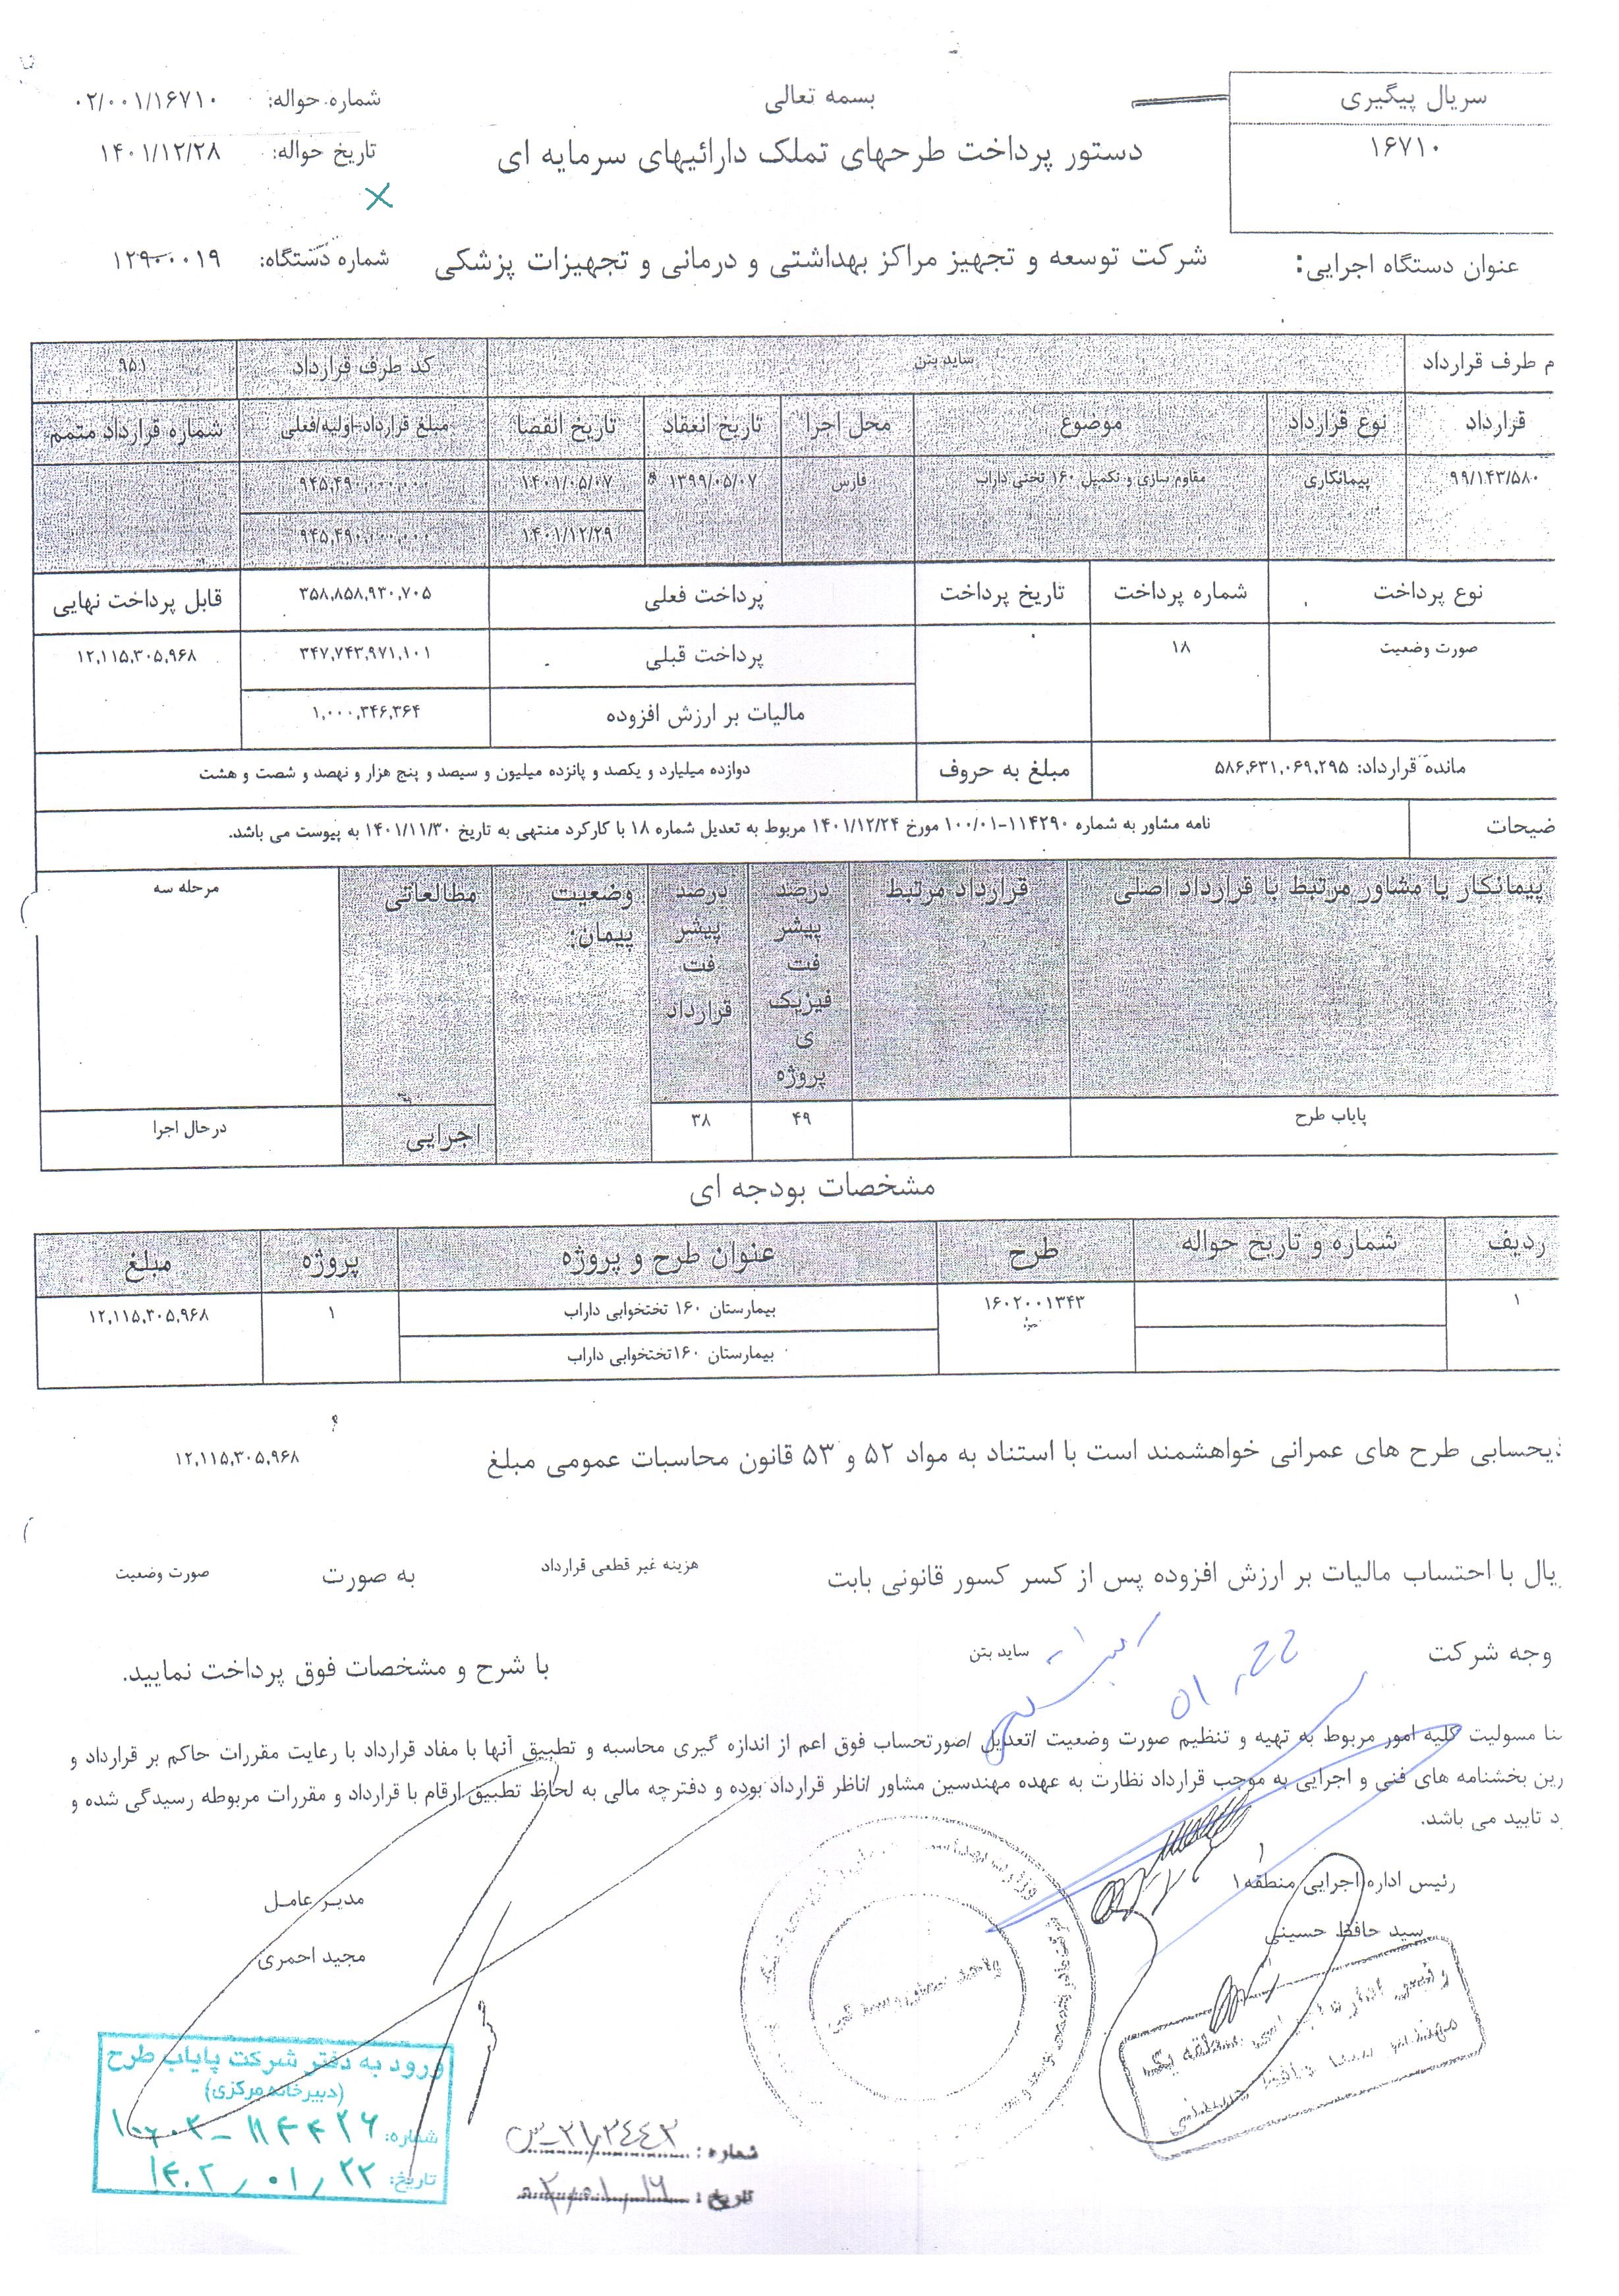 بسمه تعالی
سریال پیگیری
۱۶۷۱۰
شماره حواله: ۰۲/۰۰۱/۱۶۷۱۰
تاریخ حواله: ۱۴۰۱/۱۲/۲۸
دستور پرداخت طرحهای تملک دارائیهای سرمایه ای
عنوان دستگاه اجرایی: شرکت توسعه و تجهیز مراکز بهداشتی و درمانی و تجهیزات پزشکی شماره دستگاه: ۱۲۹۰۰۰۱۹
م طرف قرارداد ساید بتن کد طرف قرارداد ۹۵۱
قرارداد نوع قرارداد موضوع محل اجرا تاریخ انعقاد تاریخ انقضا مبلغ قرارداد-اولیه/فعلی شماره قرارداد متمم
۹۹/۱۴۳/۵۸۰ پیمانکاری مقاوم سازی و تکمیل ۱۶۰ تختی داراب فارس ۱۳۹۹/۰۵/۰۷ ۱۴۰۱/۰۵/۰۷ ۹۴۵,۴۹۰,۰۰۰,۰۰۰
۱۴۰۱/۱۲/۲۹ ۹۴۵,۴۹۰,۰۰۰,۰۰۰
نوع پرداخت شماره پرداخت تاریخ پرداخت پرداخت فعلی ۳۵۸,۸۵۸,۹۳۰,۷۰۵ قابل پرداخت نهایی
صورت وضعیت ۱۸ پرداخت قبلی ۳۴۷,۷۴۳,۹۷۱,۱۰۱ ۱۲,۱۱۵,۳۰۵,۹۶۸
مالیات بر ارزش افزوده ۱,۰۰۰,۳۴۶,۳۶۴
مانده قرارداد: ۵۸۶,۶۳۱,۰۶۹,۲۹۵ مبلغ به حروف دوازده میلیارد و یکصد و پانزده میلیون و سیصد و پنج هزار و نهصد و شصت و هشت
ضیحات نامه مشاور به شماره ۱۱۴۲۹۰-۱۰۰/۰۱ مورخ ۱۴۰۱/۱۲/۲۴ مربوط به تعدیل شماره ۱۸ با کارکرد منتهی به تاریخ ۱۴۰۱/۱۱/۳۰ به پیوست می باشد.
پیمانکار یا مشاور مرتبط با قرارداد اصلی قرارداد مرتبط درصد پیشر فت فیزیک ی پروژه درصد پیشر فت قرارداد وضعیت پیمان: مطالعاتی مرحله سه
پایاب طرح ۴۹ ۳۸ اجرایی درحال اجرا
مشخصات بودجه ای
ردیف شماره و تاریخ حواله طرح عنوان طرح و پروژه پروژه مبلغ
۱ ۱۶۰۲۰۰۱۳۴۳ بیمارستان ۱۶۰ تختخوابی داراب ۱ ۱۲,۱۱۵,۳۰۵,۹۶۸
بیمارستان ۱۶۰تختخوابی داراب
ذیحسابی طرح های عمرانی خواهشمند است با استناد به مواد ۵۲ و ۵۳ قانون محاسبات عمومی مبلغ ۱۲,۱۱۵,۳۰۵,۹۶۸
یال با احتساب مالیات بر ارزش افزوده پس از کسر کسور قانونی بابت هزینه غیر قطعی قرارداد به صورت صورت وضعیت
وجه شرکت ساید بتن با شرح و مشخصات فوق پرداخت نمایید.
نا مسولیت کلیه امور مربوط به تهیه و تنظیم صورت وضعیت /تعدیل /صورتحساب فوق اعم از اندازه گیری محاسبه و تطبیق آنها با مفاد قرارداد با رعایت مقررات حاکم بر قرارداد و
رین بخشنامه های فنی و اجرایی به موجب قرارداد نظارت به عهده مهندسین مشاور /ناظر قرارداد بوده و دفترچه مالی به لحاظ تطبیق ارقام با قرارداد و مقررات مربوطه رسیدگی شده و
د تایید می باشد.
رئیس اداره اجرایی منطقه۱
سید حافظ حسینی
مدیر عامل
مجید احمری
رئیس اداره اجرایی منطقه یک
مهندس سید حافظ حسینی
ورود به دفتر شرکت پایاب طرح
(دبیرخانه مرکزی)
شماره: ۱۱۴۴۲۶ -
تاریخ: ۱۴۰۲/۰۱/۲۲
شماره :
تاریخ :